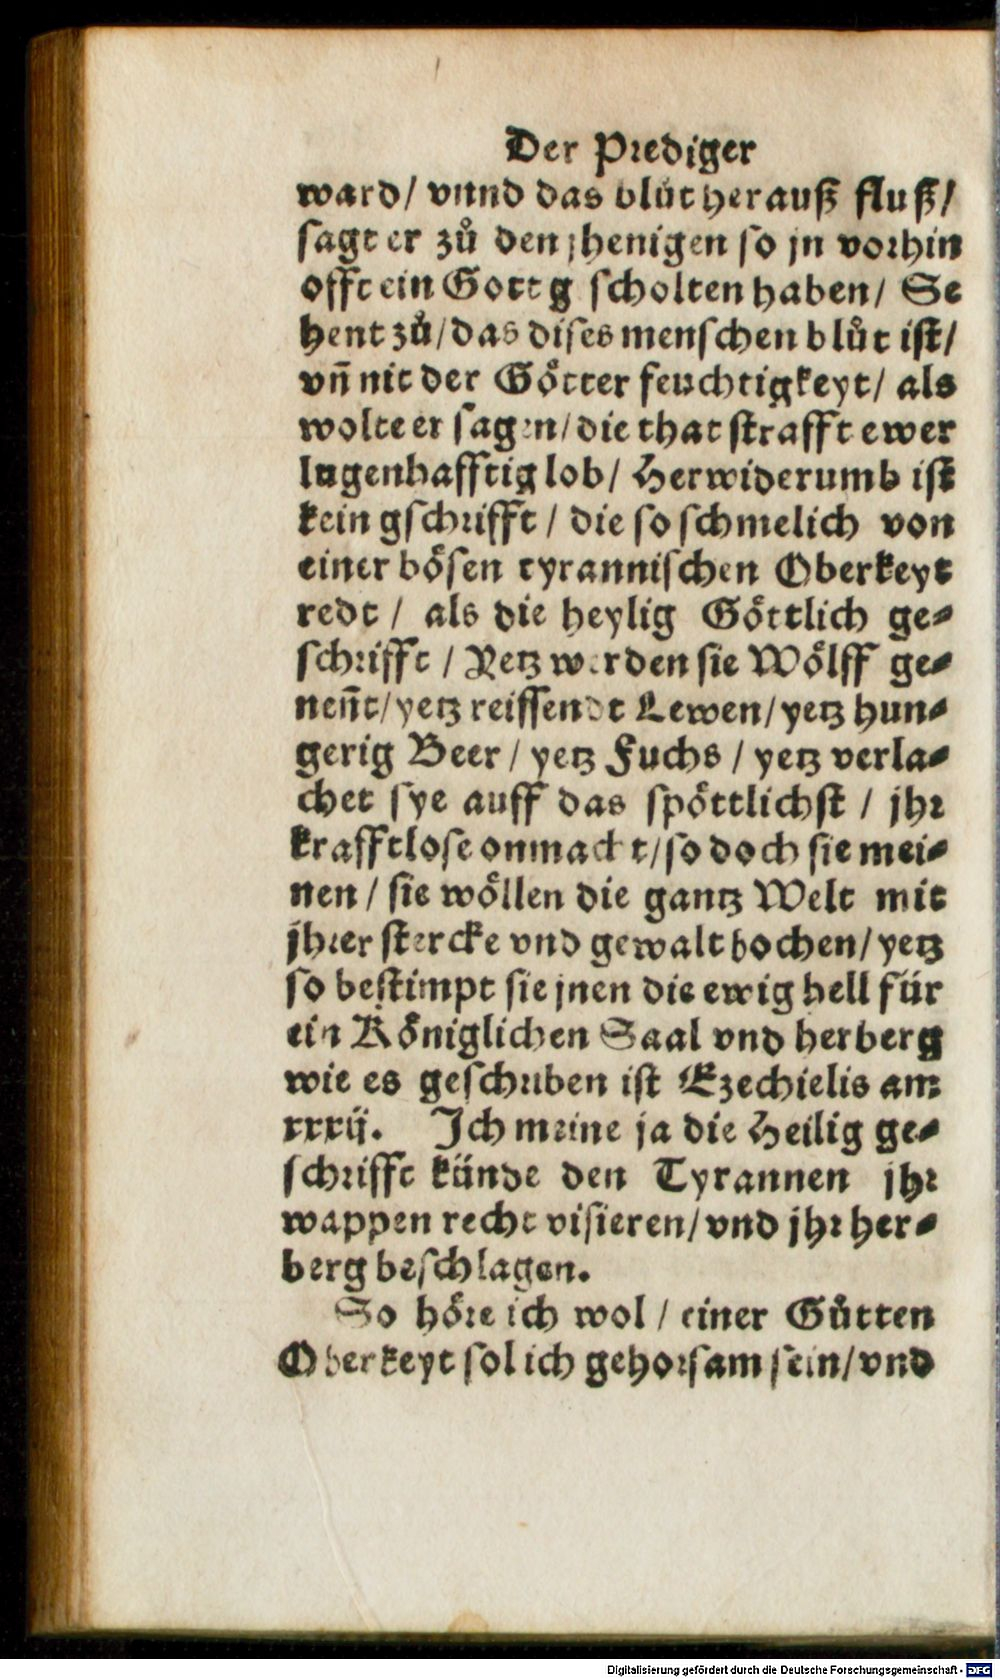 Der Prediger
ward/ vnnd das blůt herauß fluß/
sagt er zů den jhenigen so jn vorhin
offt ein Gott g scholten haben/ Se
hent zů/das dises menschen blůt ist/
vñ nit der Götter feuchtigkeyt/ als
wolte er sagen/die that strafft ewer
lugenhafftig lob/ Herwiderumb ist
kein gschrifft/ die so schmelich von
einer bösen tyrannischen Oberkeyt
redt/ als die heylig Göttlich ge⸗
schrifft/ Yetz werden sie Wölff ge⸗
neñt/yetz reissendt Lewen/yetz hun⸗
gerig Beer/ yetz Fuchs/ yetz verla⸗
chet sye auff das spöttlichst/ jhr
krafftlose onmacht/so doch sie mei⸗
nen/ sie wöllen die gantz Welt mit
jhrer stercke vnd gewalt bochen/yetz
so bestimpt sie jnen die ewig hell für
ein Königlichen Saal vnd herberg
wie es geschriben ist Ezechielis am
xxxij. Ich meine ja die Heilig ge⸗
schrifft künde den Tyrannen jhr
wappen recht visieren/vnd jhr her⸗
berg beschlagen.
So höre ich wol/ einer Gůtten
Oberkeyt sol ich gehorsam sein/vnd
Digitalisierung gefördert durch die Deutsche Forschungsgemeinschaft - DFG